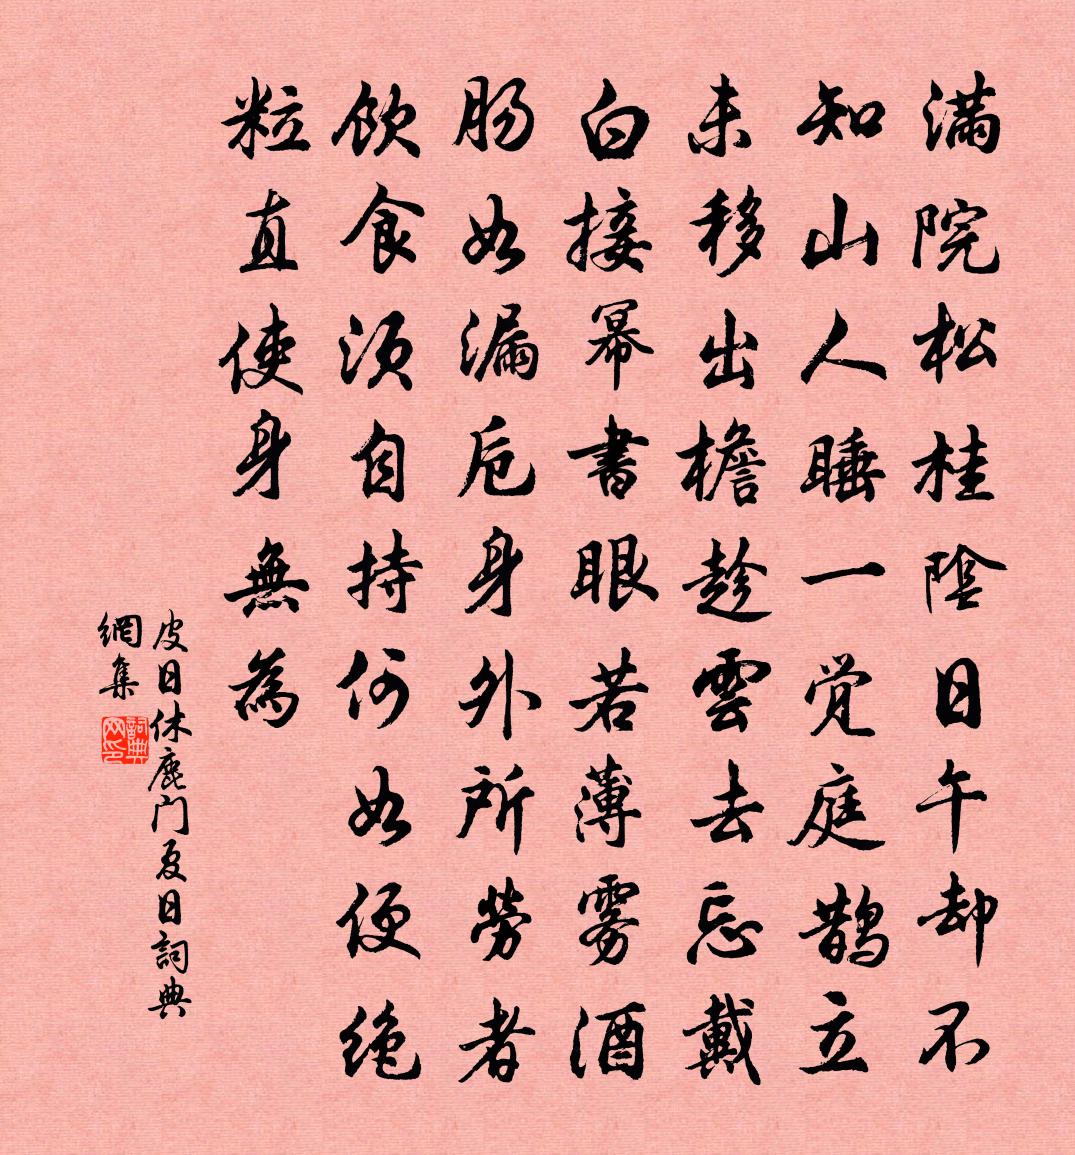 满院松桂陰日午却不
知山人睡一觉庭鹊立
未移出檐趁雲去忘戴
白接幂書眼若薄雾酒
肠如漏卮身外所勞者
飲食须自持何如便绝
粒直使身無為
皮日休鹿门夏日詞典
網集
詞典网印